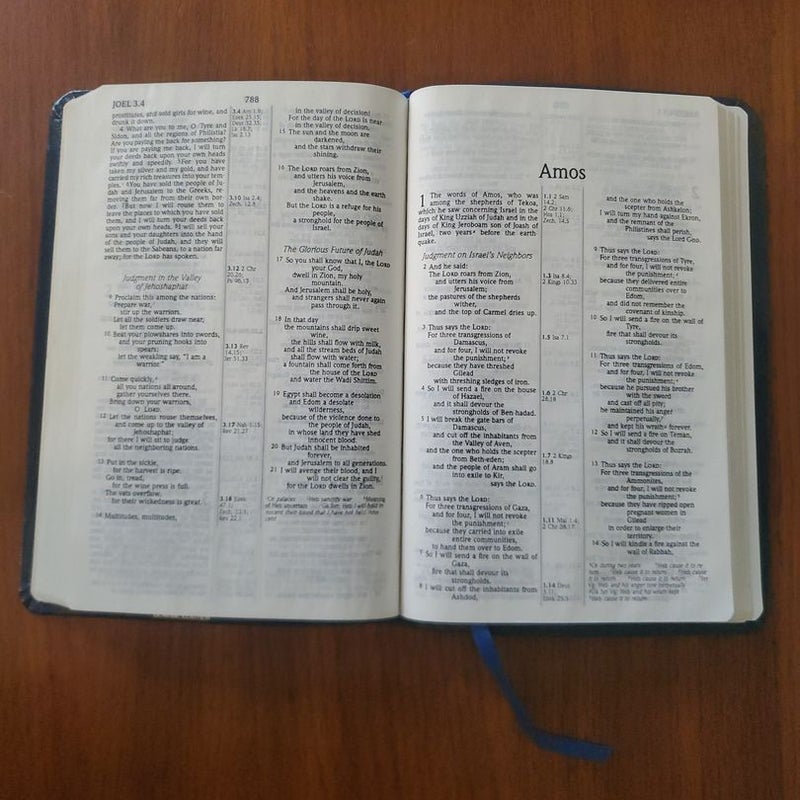 JOEL 3.4
788
prostitutes, and sold girls for wine, and
drunk it down.
4 What are you to me, O Tyre and
Sidon, and all the regions of Philistia?
Are you paying me back for something?
If you are paying me back, I will turn
your deeds back upon your own heads
swiftly and speedily. 5 For you have
taken my silver and my gold, and have
carried my rich treasures into your tem-
ples. 6 You have sold the people of Ju-
dah and Jerusalem to the Greeks, re-
moving them far from their own bor-
der. 7 But now I will rouse them to
leave the places to which you have sold
them, and I will turn your deeds back
upon your own heads. 8 I will sell your
sons and your daughters into the hand
of the people of Judah, and they will
sell them to the Sabeans, to a nation far
away; for the LORD has spoken.
Judgment in the Valley
of Jehoshaphat
9 Proclaim this among the nations:
Prepare war,
stir up the warriors.
Let all the soldiers draw near,
let them come up.
10 Beat your plowshares into swords,
and your pruning hooks into
spears;
let the weakling say, "I am a
warrior."
11 Come quickly,
all you nations all around,
gather yourselves there.
Bring down your warriors,
O LORD.
12 Let the nations rouse themselves,
and come up to the valley of
Jehoshaphat;
for there I will sit to judge
all the neighboring nations.
13 Put in the sickle,
for the harvest is ripe.
Go in, tread,
for the wine press is full.
The vats overflow,
for their wickedness is great.
14 Multitudes, multitudes,
3.10 Isa 2.4;
3.12 2 Chr
3.13 Rev
14.15;
Jer 51.33
3.17
Rev 21.27
3.18
in the valley of decision!
For the day of the LORD is near
in the valley of decision.
15 The sun and the moon are
darkened,
and the stars withdraw their
shining.
16 The LORD roars from Zion,
and utters his voice from
Jerusalem,
and the heavens and the earth
shake.
But the LORD is a refuge for his
people,
a stronghold for the people of
Israel.
The Glorious Future of Judah
17 So you shall know that I, the LORD
your God,
dwell in Zion, my holy
mountain.
And Jerusalem shall be holy,
and strangers shall never again
pass through it.
18 In that day
the mountains shall drip sweet
wine,
the hills shall flow with milk,
and all the stream beds of Judah
shall flow with water;
a fountain shall come forth from
the house of the LORD
and water the Wadi Shittim.
19 Egypt shall become a desolation
and Edom a desolate
wilderness,
because of the violence done to
the people of Judah,
in whose land they have shed
innocent blood.
20 But Judah shall be inhabited
forever,
and Jerusalem to all generations.
21 I will avenge their blood, and I
will not clear the guilty,
for the LORD dwells in Zion.
Amos
1 The words of Amos, who was
among the shepherds of Tekoa,
which he saw concerning Israel in the
days of King Uzziah of Judah and in the
days of King Jeroboam son of Joash of
Israel, two years before the earth-
quake.
Judgment on Israel's Neighbors
2 And he said:
The LORD roars from Zion,
and utters his voice from
Jerusalem;
the pastures of the shepherds
wither,
and the top of Carmel dries up.
3 Thus says the LORD:
For three transgressions of
Damascus,
and for four, I will not revoke
the punishment;
because they have threshed
Gilead
with threshing sledges of iron.
4 So I will send a fire on the house
of Hazael,
and it shall devour the
strongholds of Ben-hadad.
5 I will break the gate bars of
Damascus,
and cut off the inhabitants from
the Valley of Aven,
and the one who holds the scepter
from Beth-eden;
and the people of Aram shall go
into exile to Kir,
says the LORD.
6 Thus says the LORD:
For three transgressions of Gaza,
and for four, I will not revoke
the punishment;
because they carried into exile
entire communities,
to hand them over to Edom.
7 So I will send a fire on the wall of
Gaza,
fire that shall devour its
strongholds.
8 I will cut off the inhabitants from
Ashdod,
1.1 2 Sam
14.2;
2 Chr 11.6;
Hos 1.1;
Zech. 14.5
1.3 Isa 8.4;
2 Kings 10.33
1.5 Isa 7.1
1.6 2 Chr
28.18
1.7 2 Kings
18.8
1.11 Mal 1.4;
2 Chr 28.17
1.14 Deut
3.11;
Ezek 25.5
and the one who holds the
scepter from Ashkelon;
I will turn my hand against Ekron,
and the remnant of the
Philistines shall perish,
says the Lord GOD.
9 Thus says the LORD:
For three transgressions of Tyre,
and for four, I will not revoke
the punishment;
because they delivered entire
communities over to
Edom,
and did not remember the
covenant of kinship.
10 So I will send a fire on the wall of
Tyre,
fire that shall devour its
strongholds.
11 Thus says the LORD:
For three transgressions of Edom,
and for four, I will not revoke
the punishment;
because he pursued his brother
with the sword
and cast off all pity;
he maintained his anger
perpetually,
and kept his wrath forever.
12 So I will send a fire on Teman,
and it shall devour the
strongholds of Bozrah.
13 Thus says the LORD:
For three transgressions of the
Ammonites,
and for four, I will not revoke
the punishment;
because they have ripped open
pregnant women in
Gilead
in order to enlarge their
territory.
14 So I will kindle a fire against the
wall of Rabbah,